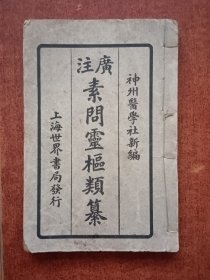 神州醫學社新編
廣注
素問靈樞類纂
上海世界書局發行